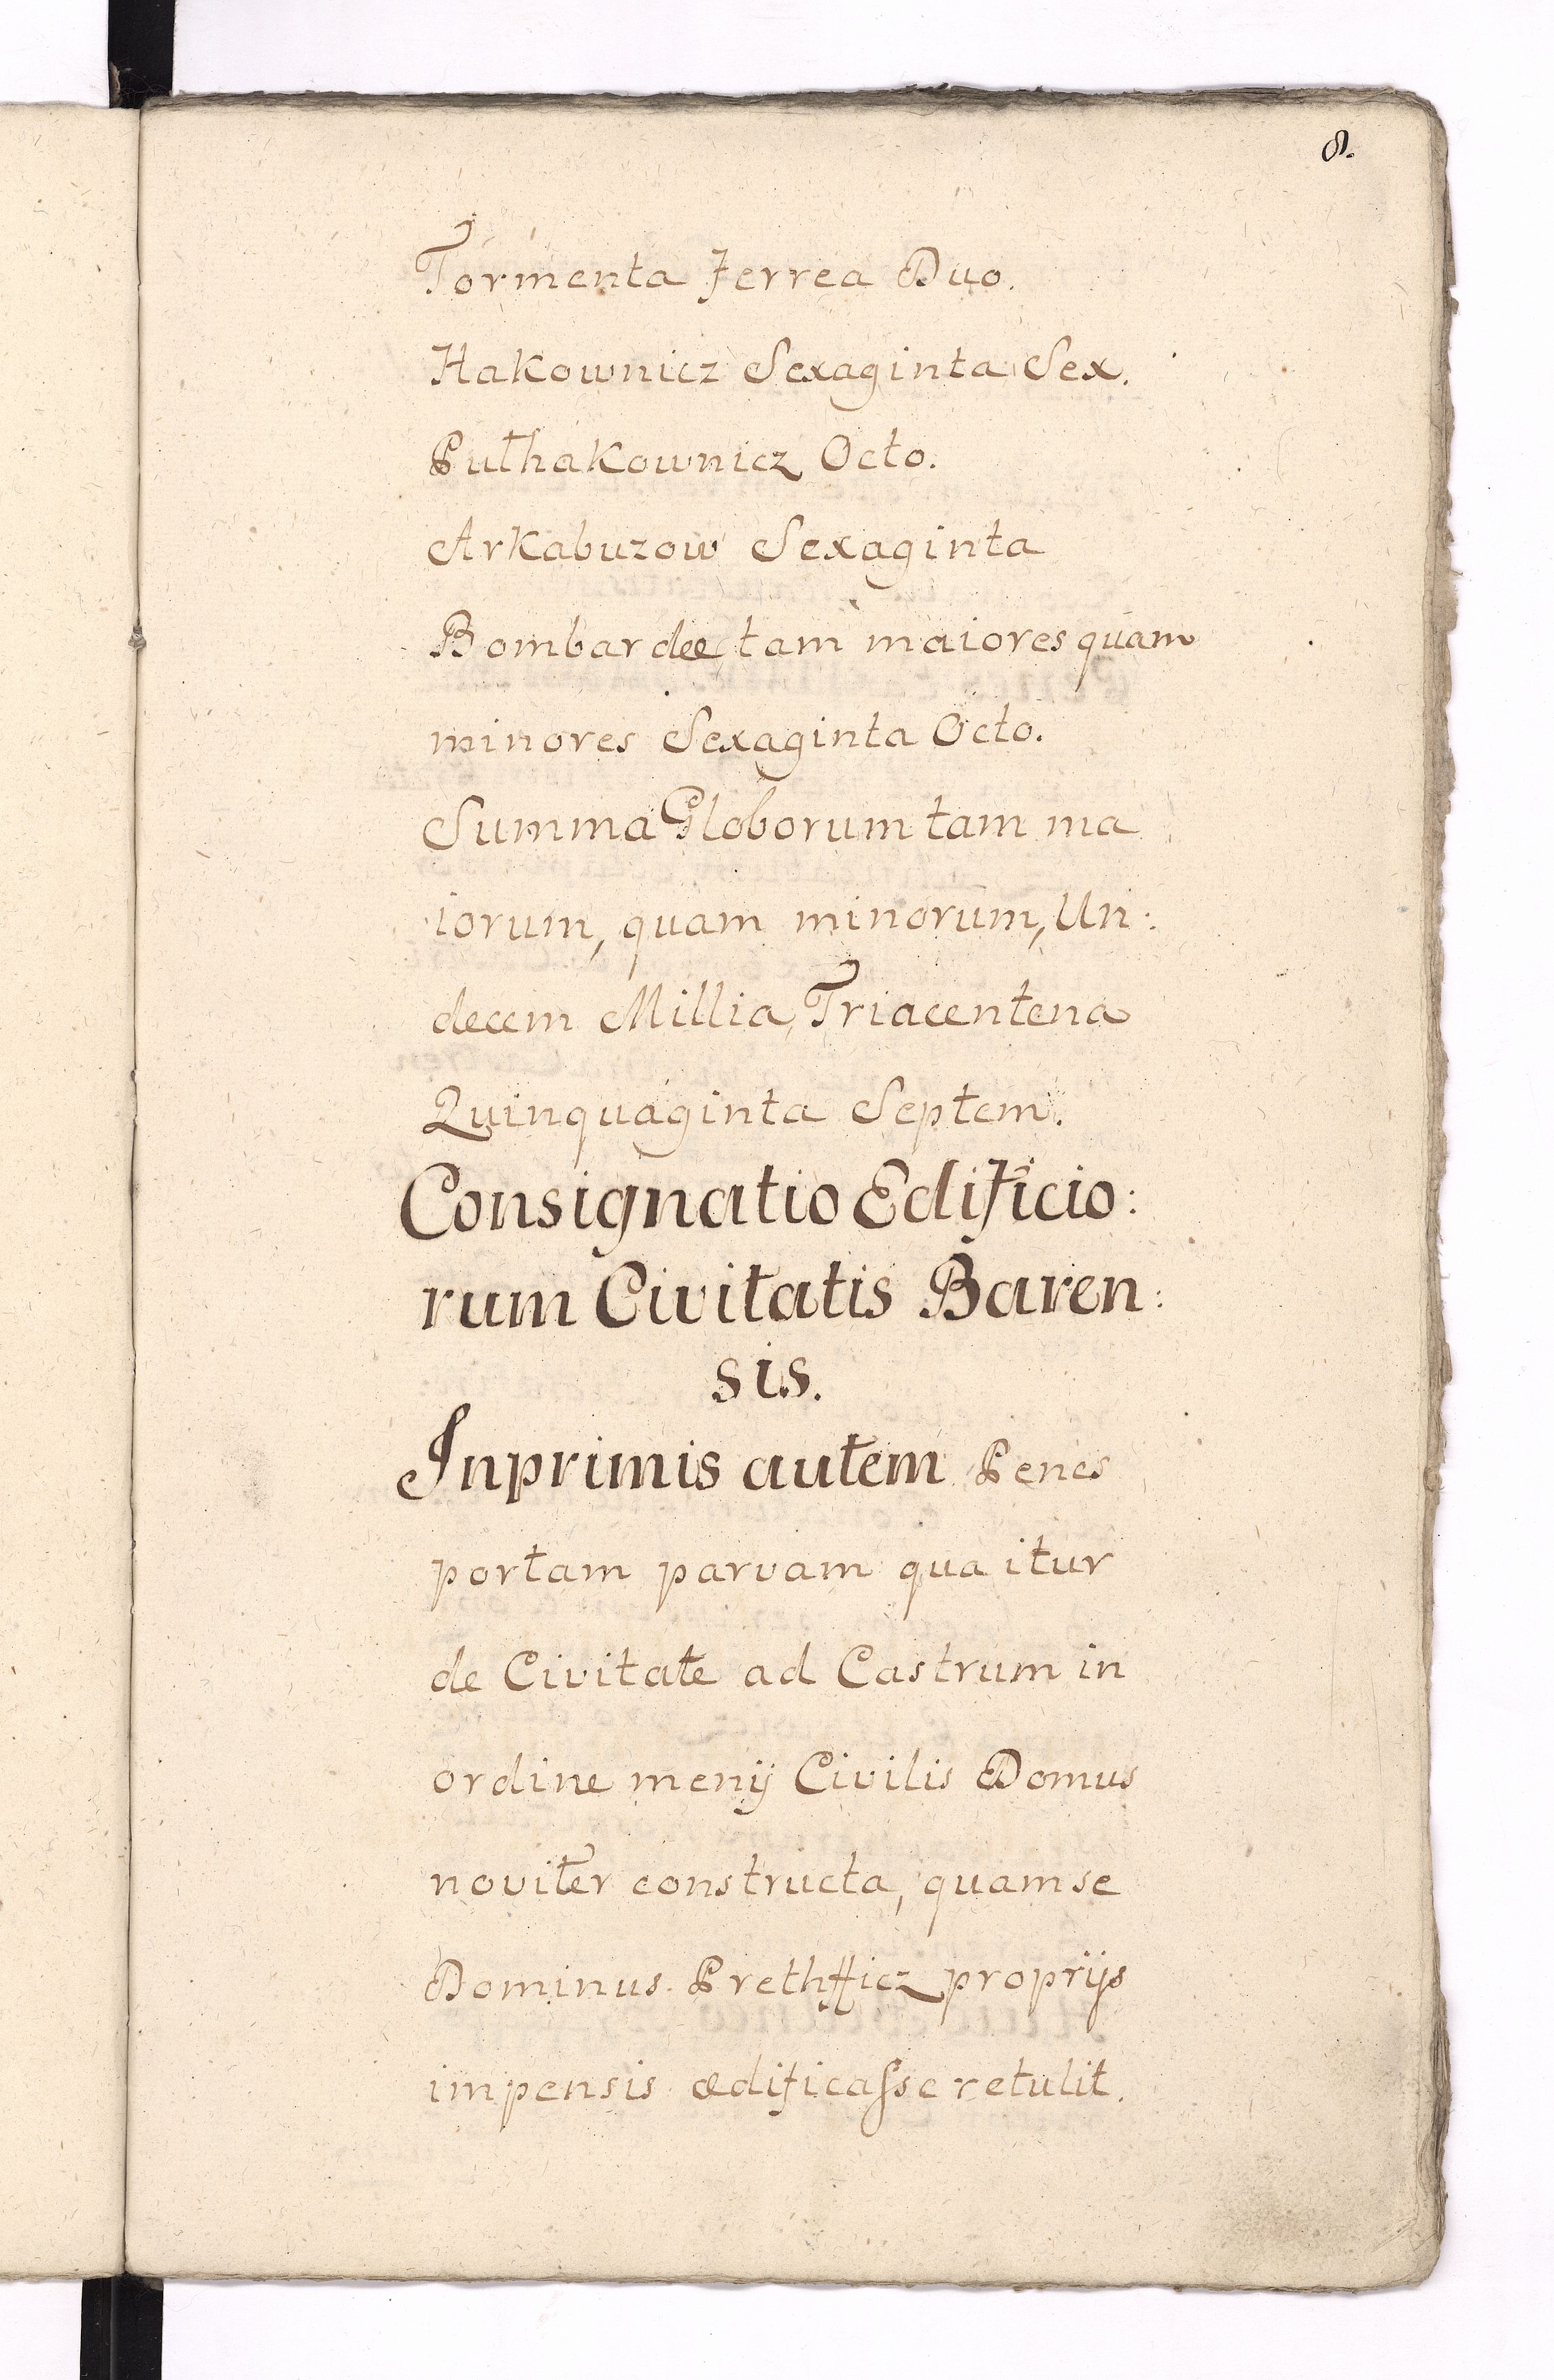 8.
Tormenta Ferrea Duo.
Hakownicz Sexaginta Sex.
Puthakownicz Octo.
Arkabuzow Sexaginta
Bombardee tam maiores quam
minores Sexaginta Octo.
Summa Globorum tam ma
iorum, quam minorum, Un:
decem Millia, Triacentena
Quinquaginta Septem.
Consignatio Edificio:
rum Civitatis Baren:
sis.
Inprimis autem Penes
portam parvam qua itur
de Civitate ad Castrum in
ordine menij Civilis Domus
noviter constructa, quam se
Dominus. Prethfficz proprijs
impensis ædificasse retulit.